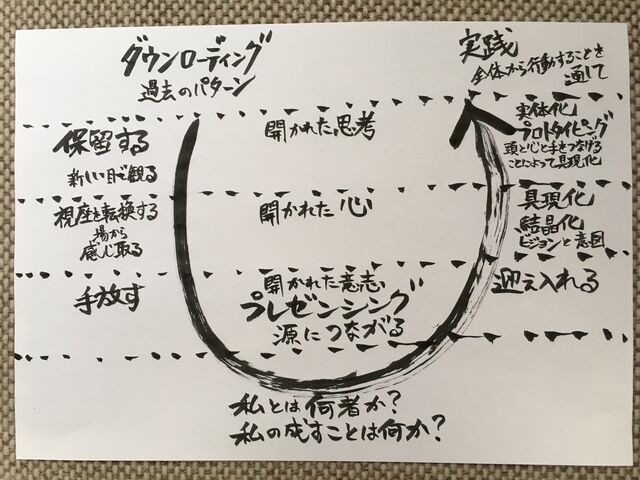 ダウンローディング
過去のパターン
実践
全体から行動することを
通して
保留する
新しい目で観る
開かれた思考
実体化
プロトタイピング
頭と心と手をつなげる
ことによって具現化
視座を転換する
場から
感じ取る
開かれた心
具現化
結晶化
ビジョンと意図
手放す
開かれた意志
プレゼンシング
源につながる
迎え入れる
私とは何者か?
私の成すことは何か?